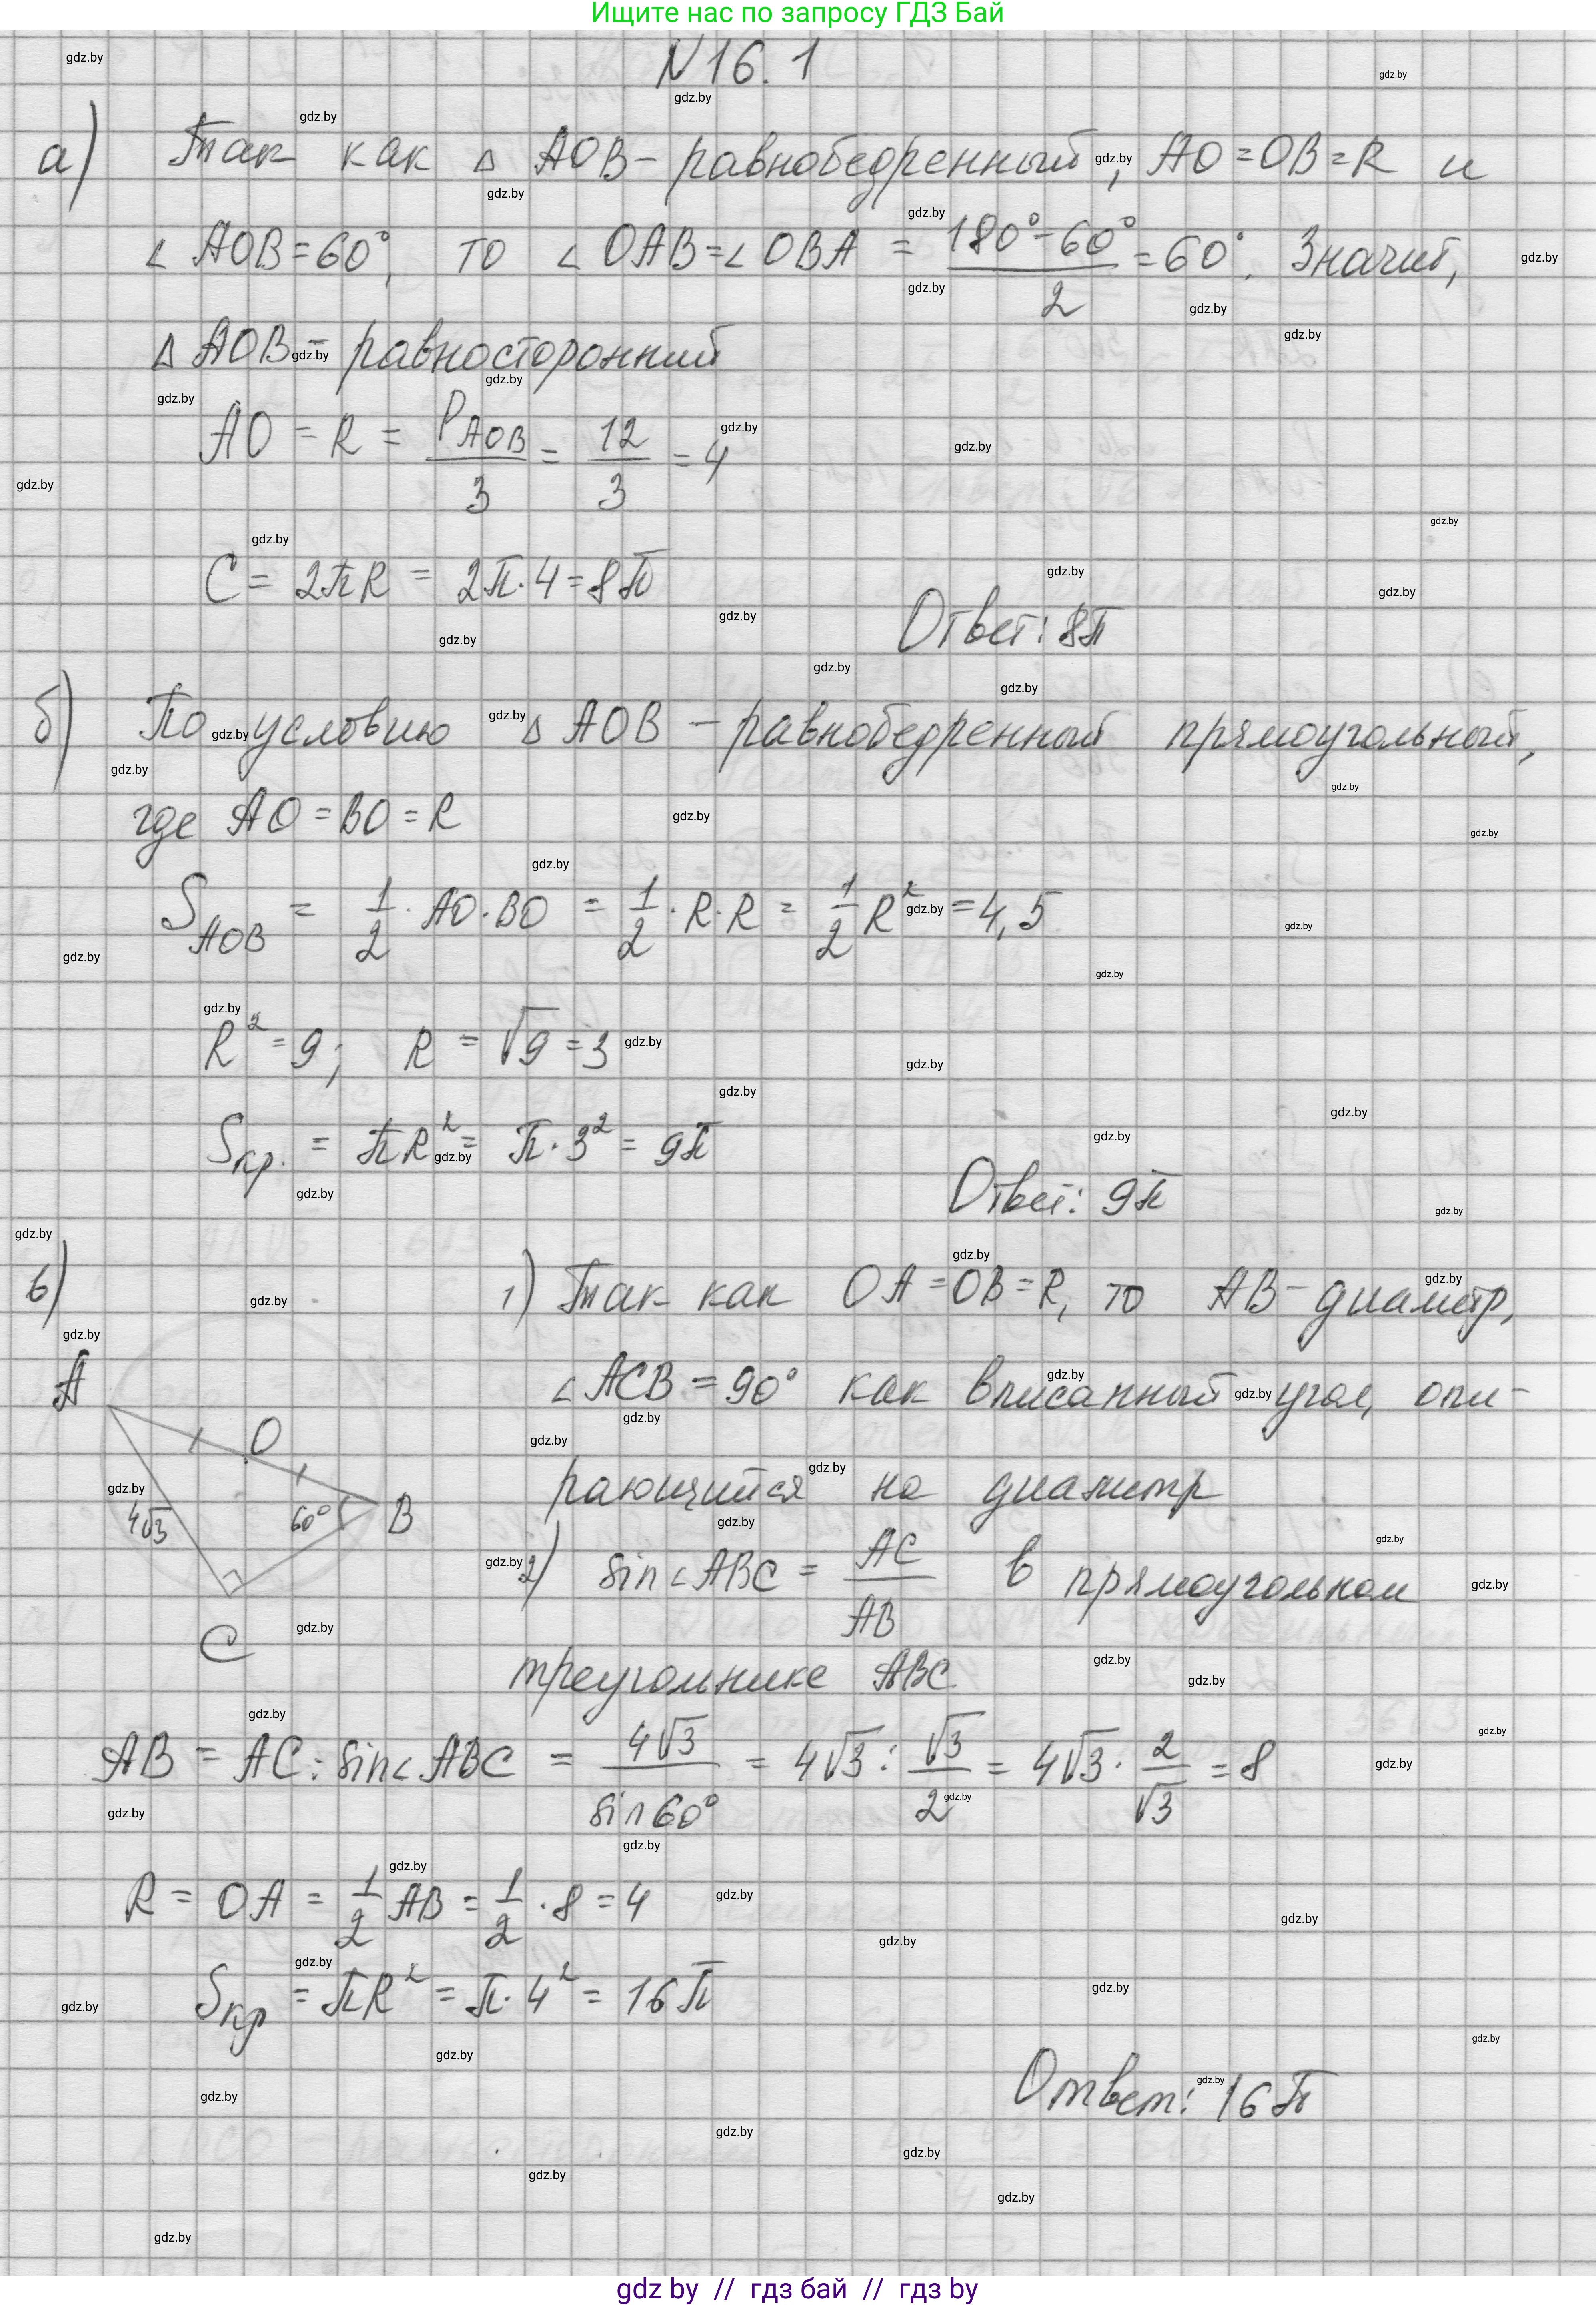 Ищите нас по запросу ГДЗ Бай
N 16. 1
а) Так как △ AOB – равнобедренный, AO = OB = R и
∠ AOB = 60°, то ∠ OAB = ∠ OBA = (180° – 60°)/2 = 60°. Значит,
△ AOB – равносторонний
AO = R = P_AOB/3 = 12/3 = 4
C = 2πR = 2π · 4 = 8π
Ответ: 8π
б) По условию △ AOB – равнобедренный прямоугольный,
где AO = BO = R
S_AOB = 1/2 · AO · BO = 1/2 · R · R = 1/2 R² = 4,5
R² = 9; R = √9 = 3
Sкр. = πR² = π · 3² = 9π
Ответ: 9π
в) 1) Так как OA = OB = R, то AB – диаметр,
∠ ACB = 90° как вписанный угол, опи-
рающийся на диаметр
A
O
4√3
60°
B
C
2) sin∠ABC = AC/AB в прямоугольном
треугольнике ABC
AB = AC : sin∠ABC = 4√3/sin 60° = 4√3 : √3/2 = 4√3 · 2/√3 = 8
R = OA = 1/2 AB = 1/2 · 8 = 4
Sкр = πR² = π · 4² = 16π
Ответ: 16π
gdz by // гдз бай // гдз by